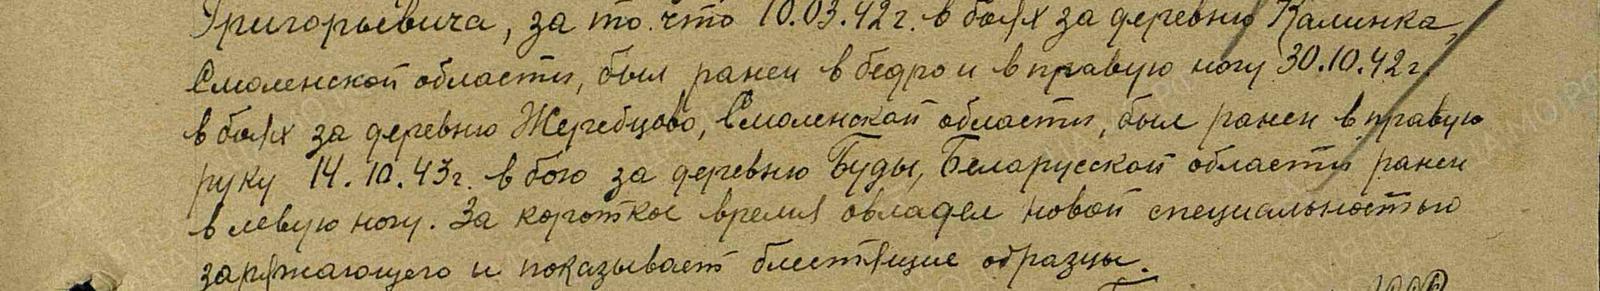 Григорьевича, за то. что 10.03.42г. в боях за деревню Калинка,
Смоленской области, был ранен в бедро и в правую ногу 30.10.42г.
в боях за деревню Жеребцово, Смоленской области, был ранен в правую
руку 14.10.43г. в бою за деревню Буды, Беларусской области ранен
в левую ногу. За короткое время овладел новой специальностью
заряжающего и показывает блестящие образцы.